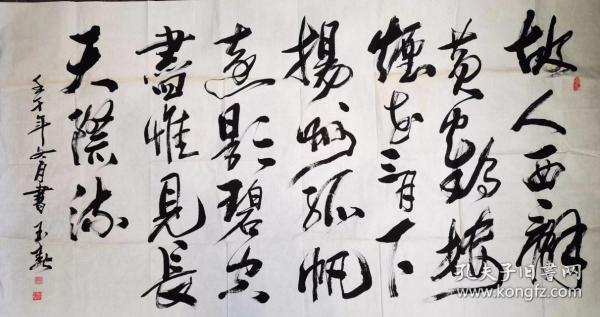 故人西辭
黄鶴樓
煙花三月下
揚州孤帆
遠影碧空
盡惟見長
天際流
壬午年六月書
孔夫子旧书网
www.kongfz.com